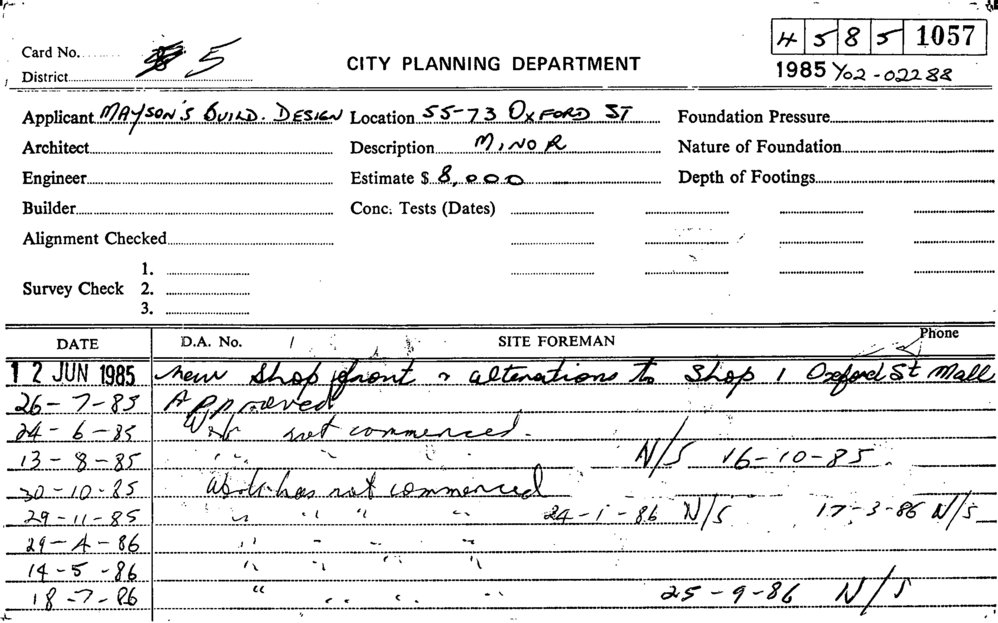 4 5 8 5 1057
Card No. 5
CITY PLANNING DEPARTMENT
1985 Y02-02288
District
Applicant MAYSON'S BUILD. DESIGN Location 55-73 OXFORD ST Foundation Pressure
Architect Description MINOR Nature of Foundation
Engineer Estimate $ 8,000 Depth of Footings
Builder Conc. Tests (Dates)
Alignment Checked
1.
Survey Check 2.
3.
DATE D.A. No. SITE FOREMAN Phone
12 JUN 1985 New Shop front & alterations to Shop 1 Oxford St Mall
26-7-85 Approved
24-6-85 Work not commenced.
13-8-85 " " " " N/S 16-10-85.
30-10-85 Work has not commenced
29-11-85 " " " " 24-1-86 N/S 17-3-86 N/S
29-4-86 " " " "
14-5-86 " " " "
18-7-86 " " " " " 25-9-86 N/S